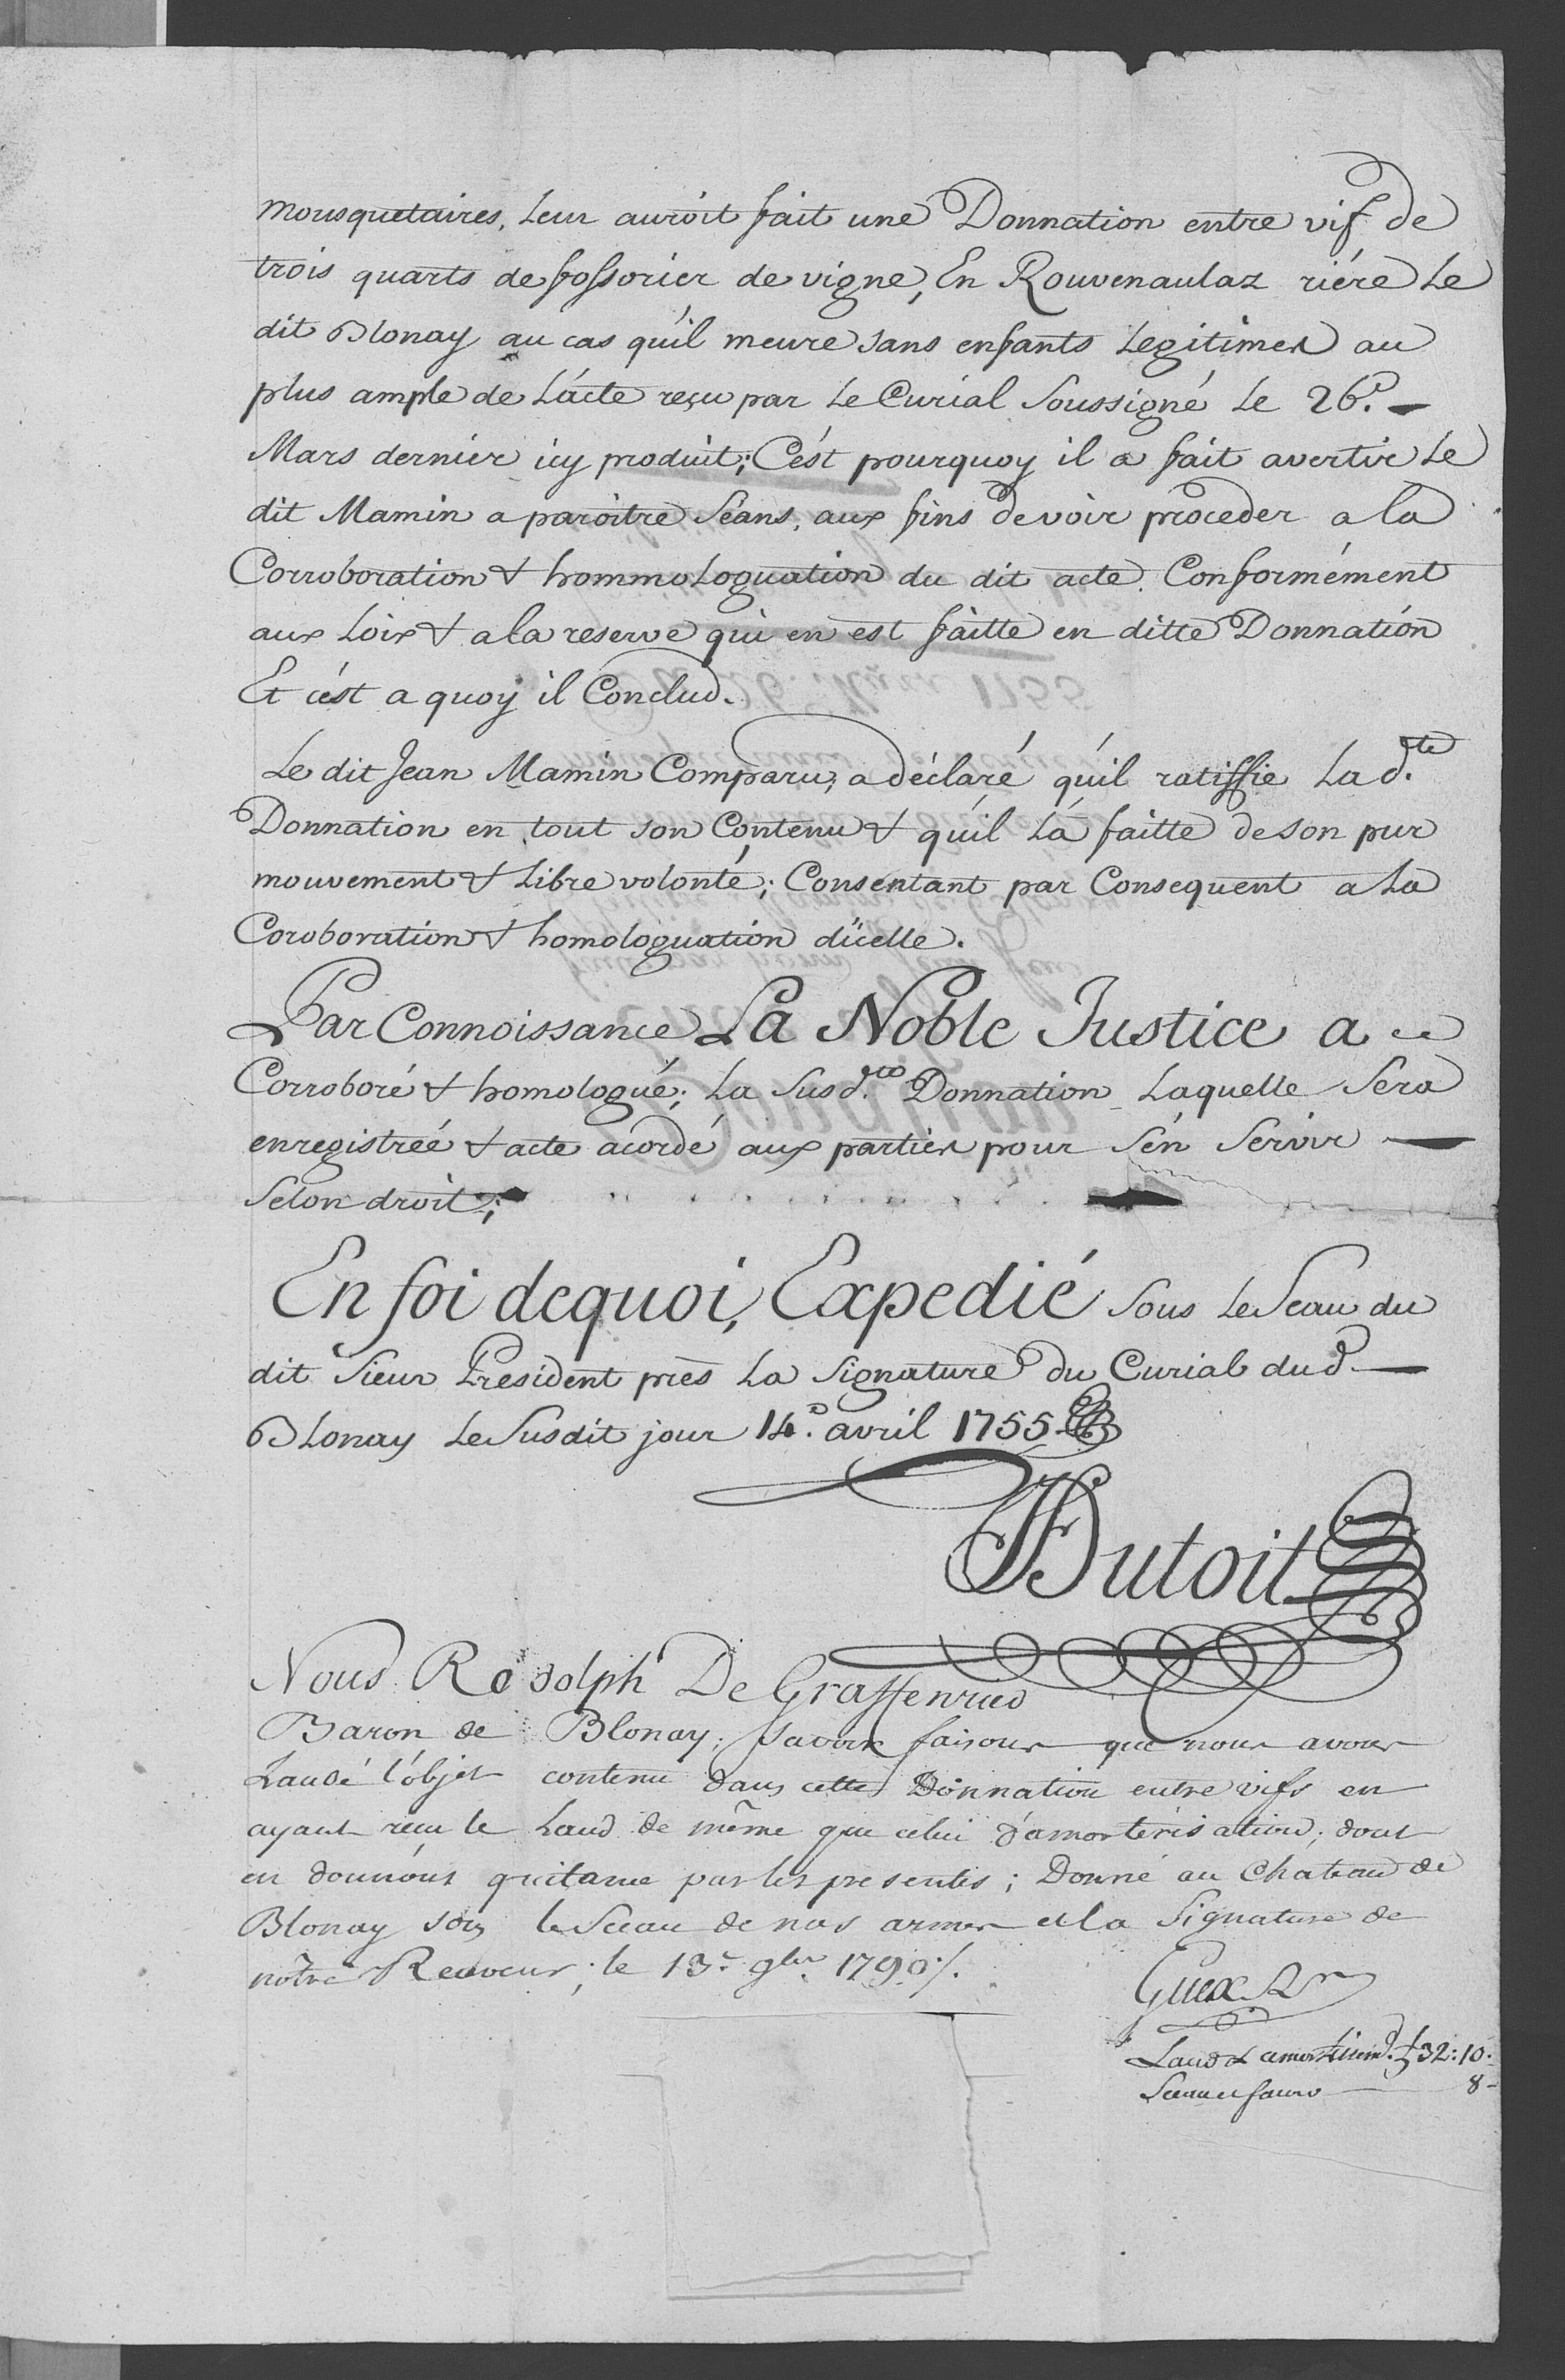 mousquetaires, Leur auroit fait une Donnation entre vif de
trois quarts de fossorier de vigne, En Rouvenaulaz riére Le
dit Blonay au cas qu'il meure sans enfants Legitimes au
plus ample de L'acte reçu par Le Curial Soussigné Le 26.e
Mars dernier icy produit; C'est pourquoy il a fait avertir Le
dit Mamin a paroitre Séans, aux fins de voir proceder a la
Corroboration & hommologuation du dit acte. Conformément
aux Loix & a la reserve qui en est faitte en ditte Donnation
Et c'est a quoy il Conclud.
Le dit Jean Mamin Comparu, a déclaré qu'il ratiffie La d.te
Donnation en tout son Contenu & qu'il L'a faitte de son pur
mouvement & Libre volonté; Consentant par Consequent a La
Coroboration & homologuation d'icelle.
Par Connoissance La Noble Justice a
Corroboré & homologué; La Susd.te Donnation Laquelle Sera
enregistreé & acte acordé aux parties pour S'en Servir
Selon droit;
En foi dequoi, Expedié Sous Le Seau du
dit Sieur President près La Signature du Curial dud.
Blonay Le Susdit jour 14.e avril 1755
Dutoit
Nous Rodolph De Graffenried
Baron de Blonay; savoir faisons que nous avons
Laudé l'objet contenu dans cette Donnation entre vifs en
ayant reçu le Laud de même que celui d'amorterisation; dont
en donnons quitance par les presentes; Donné au Château de
Blonay sous le Sceau de nos armes et la Signature de
nôtre Receveur; le 13.e 9bre 1790.
Guex
Laud & amortissem.t 32:10.
8-